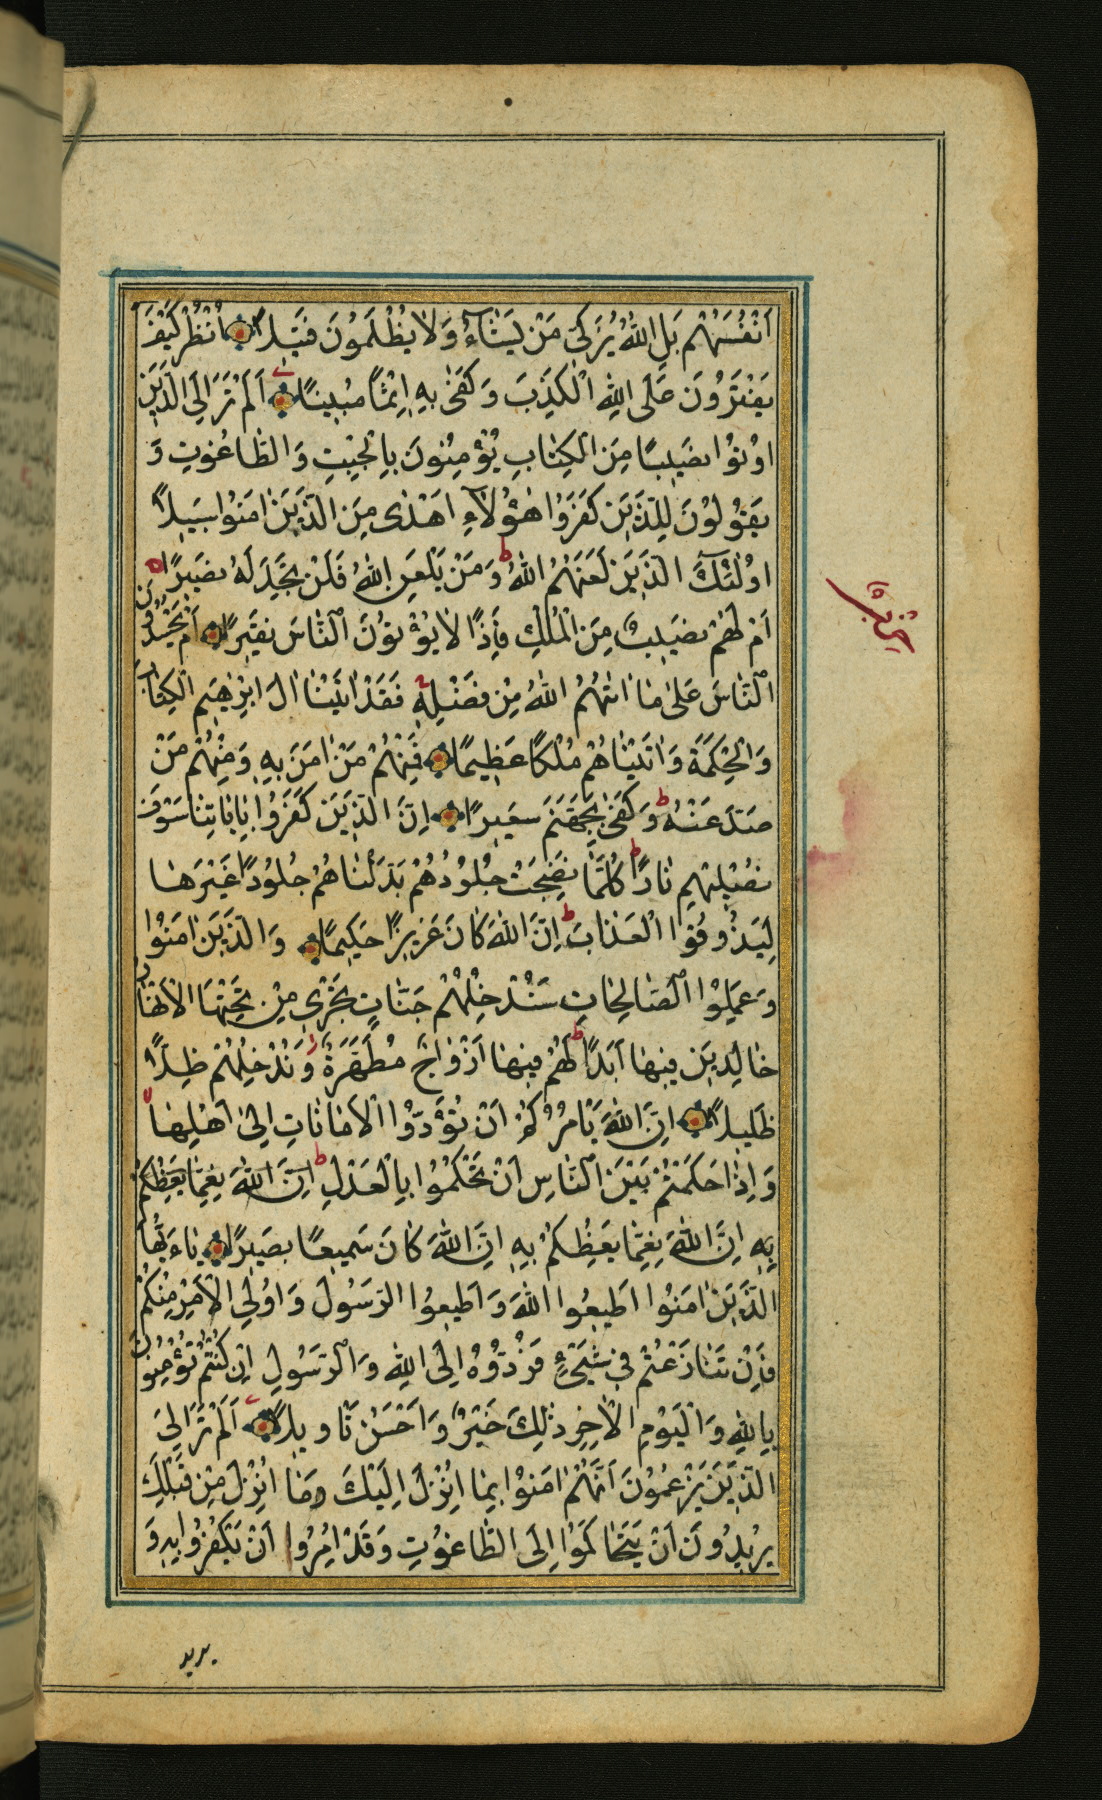 اَنْفُسَهُمْ بَلِ اللّٰهُ يُزَكّى مَنْ يَشٰٓاءُ وَلاٰ يُظْلَمُونَ فَتيلاً اُنْظُرْ كَيْفَ
يَفْتَرُونَ عَلَى اللّٰهِ الْكَذِبَ وَكَفىٰ بِهِ اِثْمًا مُبينًا اَلَمْ تَرَ اِلَى الَّذينَ
اوُتُوا نَصيبًا مِنَ الْكِتٰابِ يُؤْمِنُونَ بِالْجِبْتِ وَالطّٰاغُوتِ وَ
يَقُولُونَ لِلَّذينَ كَفَرُوا هٰؤُلآٰءِ اَهْدىٰ مِنَ الَّذينَ اٰمَنُوا سَبيلاً
اوُلٰئِكَ الَّذينَ لَعَنَهُمُ اللّٰهُ ط وَمَنْ يَلْعَنِ اللّٰهُ فَلَنْ تَجِدَ لَهُ نَصيرًا
اَمْ لَهُمْ نَصيبٌ مِنَ الْمُلْكِ فَاِذًا لاٰ يُؤْتُونَ النّٰاسَ نَقيرًا اَمْ يَحْسُدُونَ
النّٰاسَ عَلىٰ مٰا اٰتٰهُمُ اللّٰهُ مِنْ فَضْلِهِ فَقَدْ اٰتَيْنٰا اٰلَ اِبْرٰهيمَ الْكِتٰابَ
وَالْحِكْمَةَ وَاٰتَيْنٰاهُمْ مُلْكًا عَظيمًا فَمِنْهُمْ مَنْ اٰمَنَ بِهِ وَمِنْهُمْ مَنْ
صَدَّ عَنْهُ ط وَكَفىٰ بِجَهَنَّمَ سَعيرًا اِنَّ الَّذينَ كَفَرُوا بِاٰيٰاتِنٰا سَوْفَ
نُصْليهِمْ نٰارًا ط كُلَّمٰا نَضِجَتْ جُلُودُهُمْ بَدَّلْنٰاهُمْ جُلُودًا غَيْرَهٰا
لِيَذُوقُوا الْعَذٰابَ ط اِنَّ اللّٰهَ كٰانَ عَزيزًا حَكيمًا وَالَّذينَ اٰمَنُوا
وَعَمِلُوا الصّٰالِحٰاتِ سَنُدْخِلُهُمْ جَنّٰاتٍ تَجْرى مِنْ تَحْتِهَا الْاَنْهٰارُ
خٰالِدينَ فيهٰا اَبَدًا ط لَهُمْ فيهٰا اَزْوٰاجٌ مُطَهَّرَةٌ وَنُدْخِلُهُمْ ظِلاًّ
ظَليلاً اِنَّ اللّٰهَ يَاْمُرُكُمْ اَنْ تُؤَدُّوا الْاَمٰانٰاتِ اِلىٰ اَهْلِهٰا
وَاِذٰا حَكَمْتُمْ بَيْنَ النّٰاسِ اَنْ تَحْكُمُوا بِالْعَدْلِ ط اِنَّ اللّٰهَ نِعِمّٰا يَعِظُكُمْ
بِهِ اِنَّ اللّٰهَ نِعِمّٰا يَعِظُكُمْ بِهِ اِنَّ اللّٰهَ كٰانَ سَميعًا بَصيرًا يٰاءَيُّهَا
الَّذينَ اٰمَنُوا اَطيعُوا اللّٰهَ وَاَطيعُوا الرَّسُولَ وَاوُلِى الْاَمْرِ مِنْكُمْ
فَاِنْ تَنٰازَعْتُمْ فى شَىْءٍ فَرُدُّوهُ اِلَى اللّٰهِ وَالرَّسُولِ اِنْ كُنْتُمْ تُؤْمِنُونَ
بِاللّٰهِ وَالْيَوْمِ الْاٰخِرِ ذٰلِكَ خَيْرٌ وَاَحْسَنُ تَاْويلاً اَلَمْ تَرَ اِلَى
الَّذينَ يَزْعُمُونَ اَنَّهُمْ اٰمَنُوا بِمٰا اُنْزِلَ اِلَيْكَ وَمٰا اُنْزِلَ مِنْ قَبْلِكَ
يُريدُونَ اَنْ يَتَحٰاكَمُوا اِلَى الطّٰاغُوتِ وَقَدْ اُمِرُوا اَنْ يَكْفُرُوا بِهِ وَ
يريد